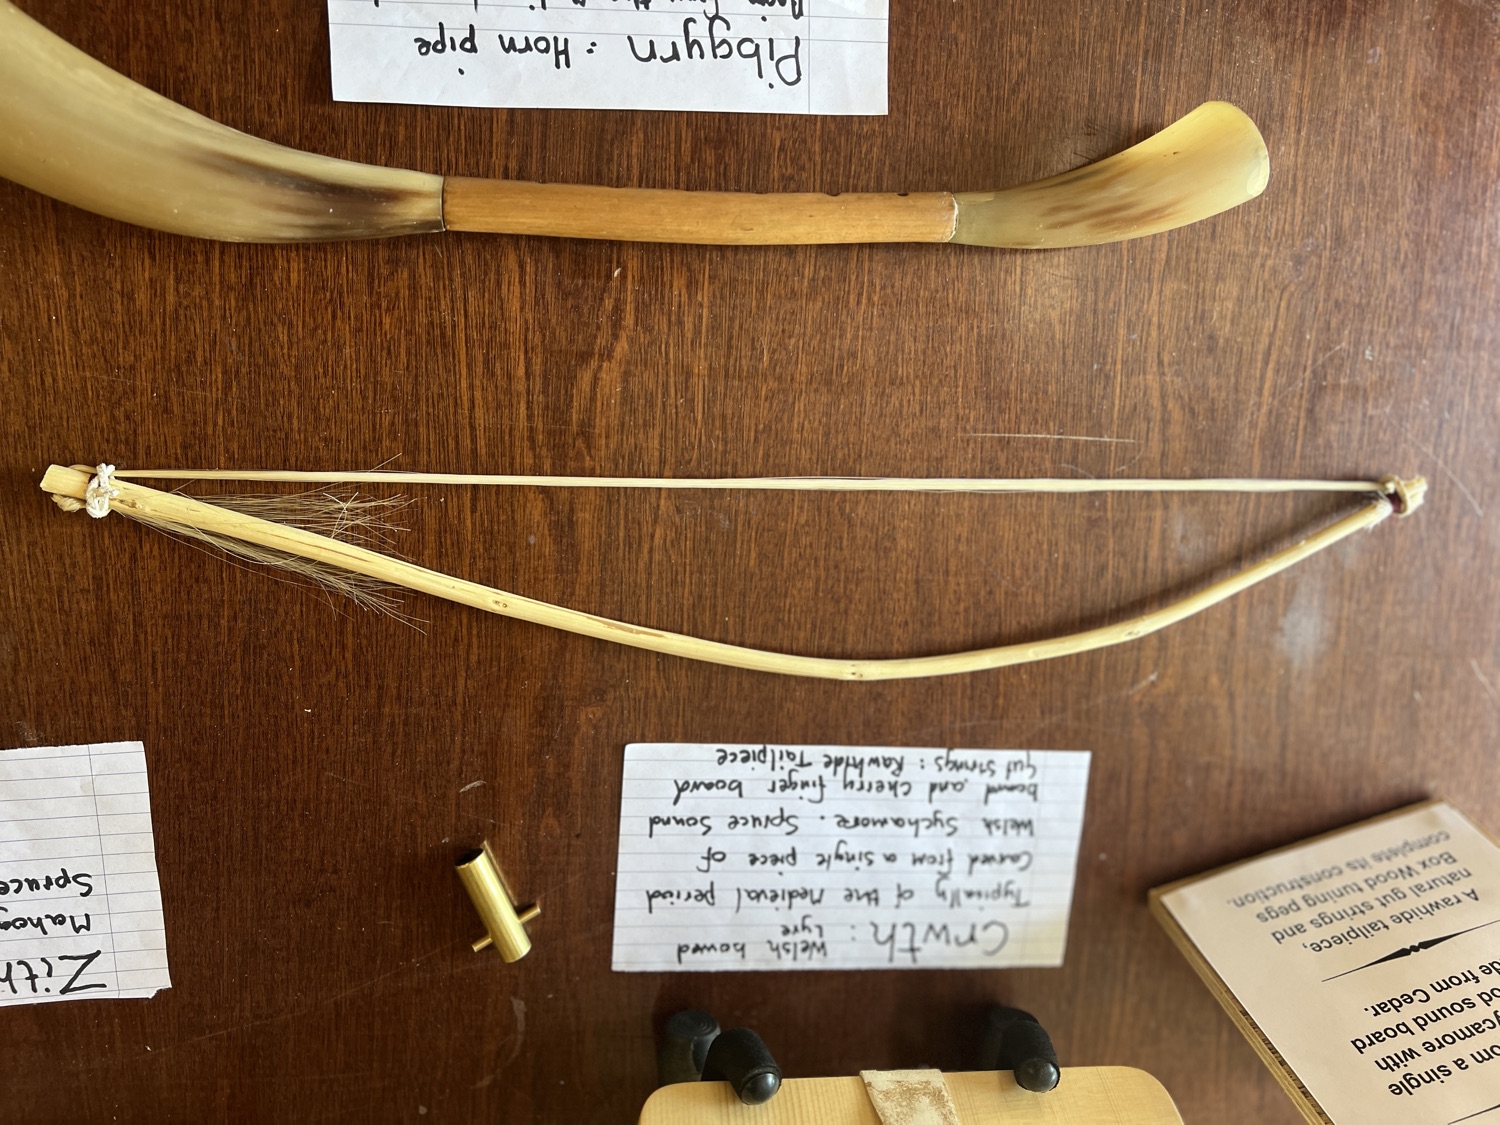 Pibgyrn : Horn pipe
Crwth : Welsh bowed
Lyre
Typically of the Medieval period
Carved from a single piece of
Welsh Sychamore. Spruce Sound
board and cherry finger board
Gut strings : Rawhide Tailpiece
Zith
Mahog
Spruce
om a single
ycamore with
od sound board
de from Cedar.
A rawhide tailpiece,
natural gut strings and
Box Wood tuning pegs
complete its construction.